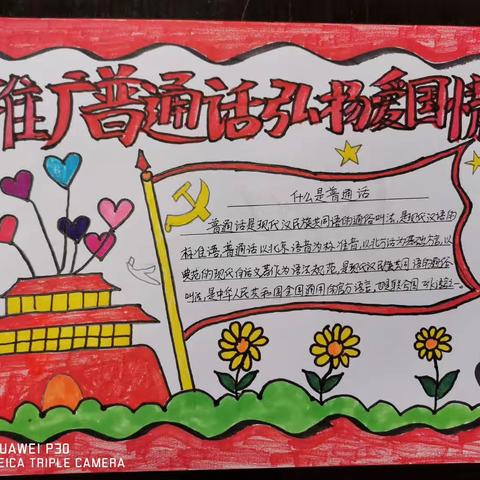 推广普通话弘扬爱国情
什么是普通话
普通话是现代汉民族共同语的通俗叫法,是现代汉语的
标准语,普通话以北京语音为标准音,以北方话为基础方言,以
典范的现代白话文著作为语法规范,是现代汉民族共同语的通俗
叫法,是中华人民共和国全国通用的官方语言,也是联合国
UAWEI P30
EICA TRIPLE CAMERA